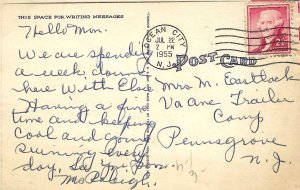 THIS SPACE FOR WRITING MESSAGES
Hello Mom.
We are spending
a week down
here with
Having a fine
time and keeping
cool and going
swimming every
day. See you soon.
OCEAN CITY
JUL 22
2 PM
1955
N.J.
POST CARD
Mrs M. Eastlack
Trailer
Camp
Pennsgrove
N. J.